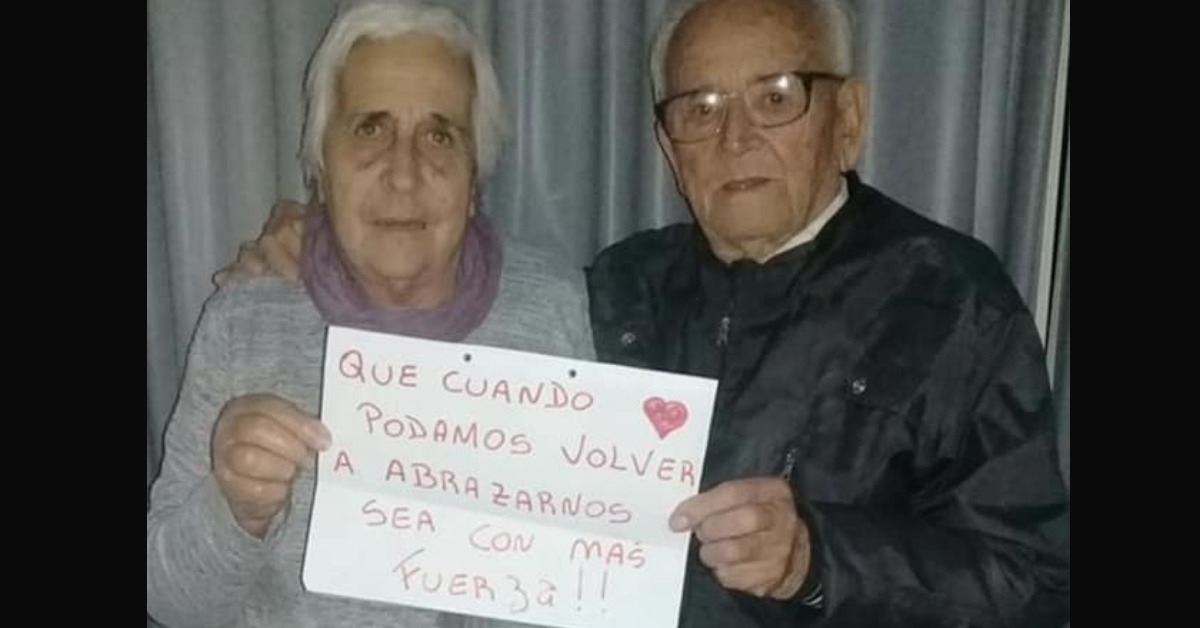 QUE CUANDO
PODAMOS VOLVER
A ABRAZARNOS
SEA CON MAS
FUERZA!!